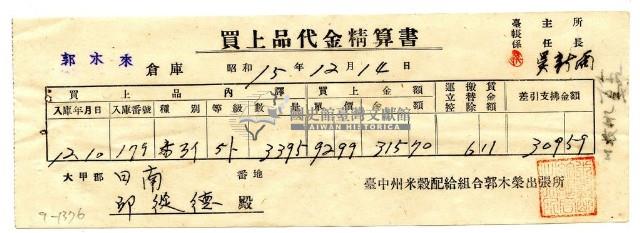 買上品代金精算書
臺帳係 主任 所長
吳新南
郭水來 倉庫 昭和15年12月14日
買上品內譯 買上金額 運立搬替賃金控除額 差引支拂金額
入庫年月日 入庫番號 種別 等級 數量 單價 金額
12.10 179 3395 9299 31570 611 30959
大甲郡 田南 番地
邱從德 殿
臺中州米穀配給組合郭木榮出張所
9-1376
國史館臺灣文獻館
TAIWAN HISTORICA